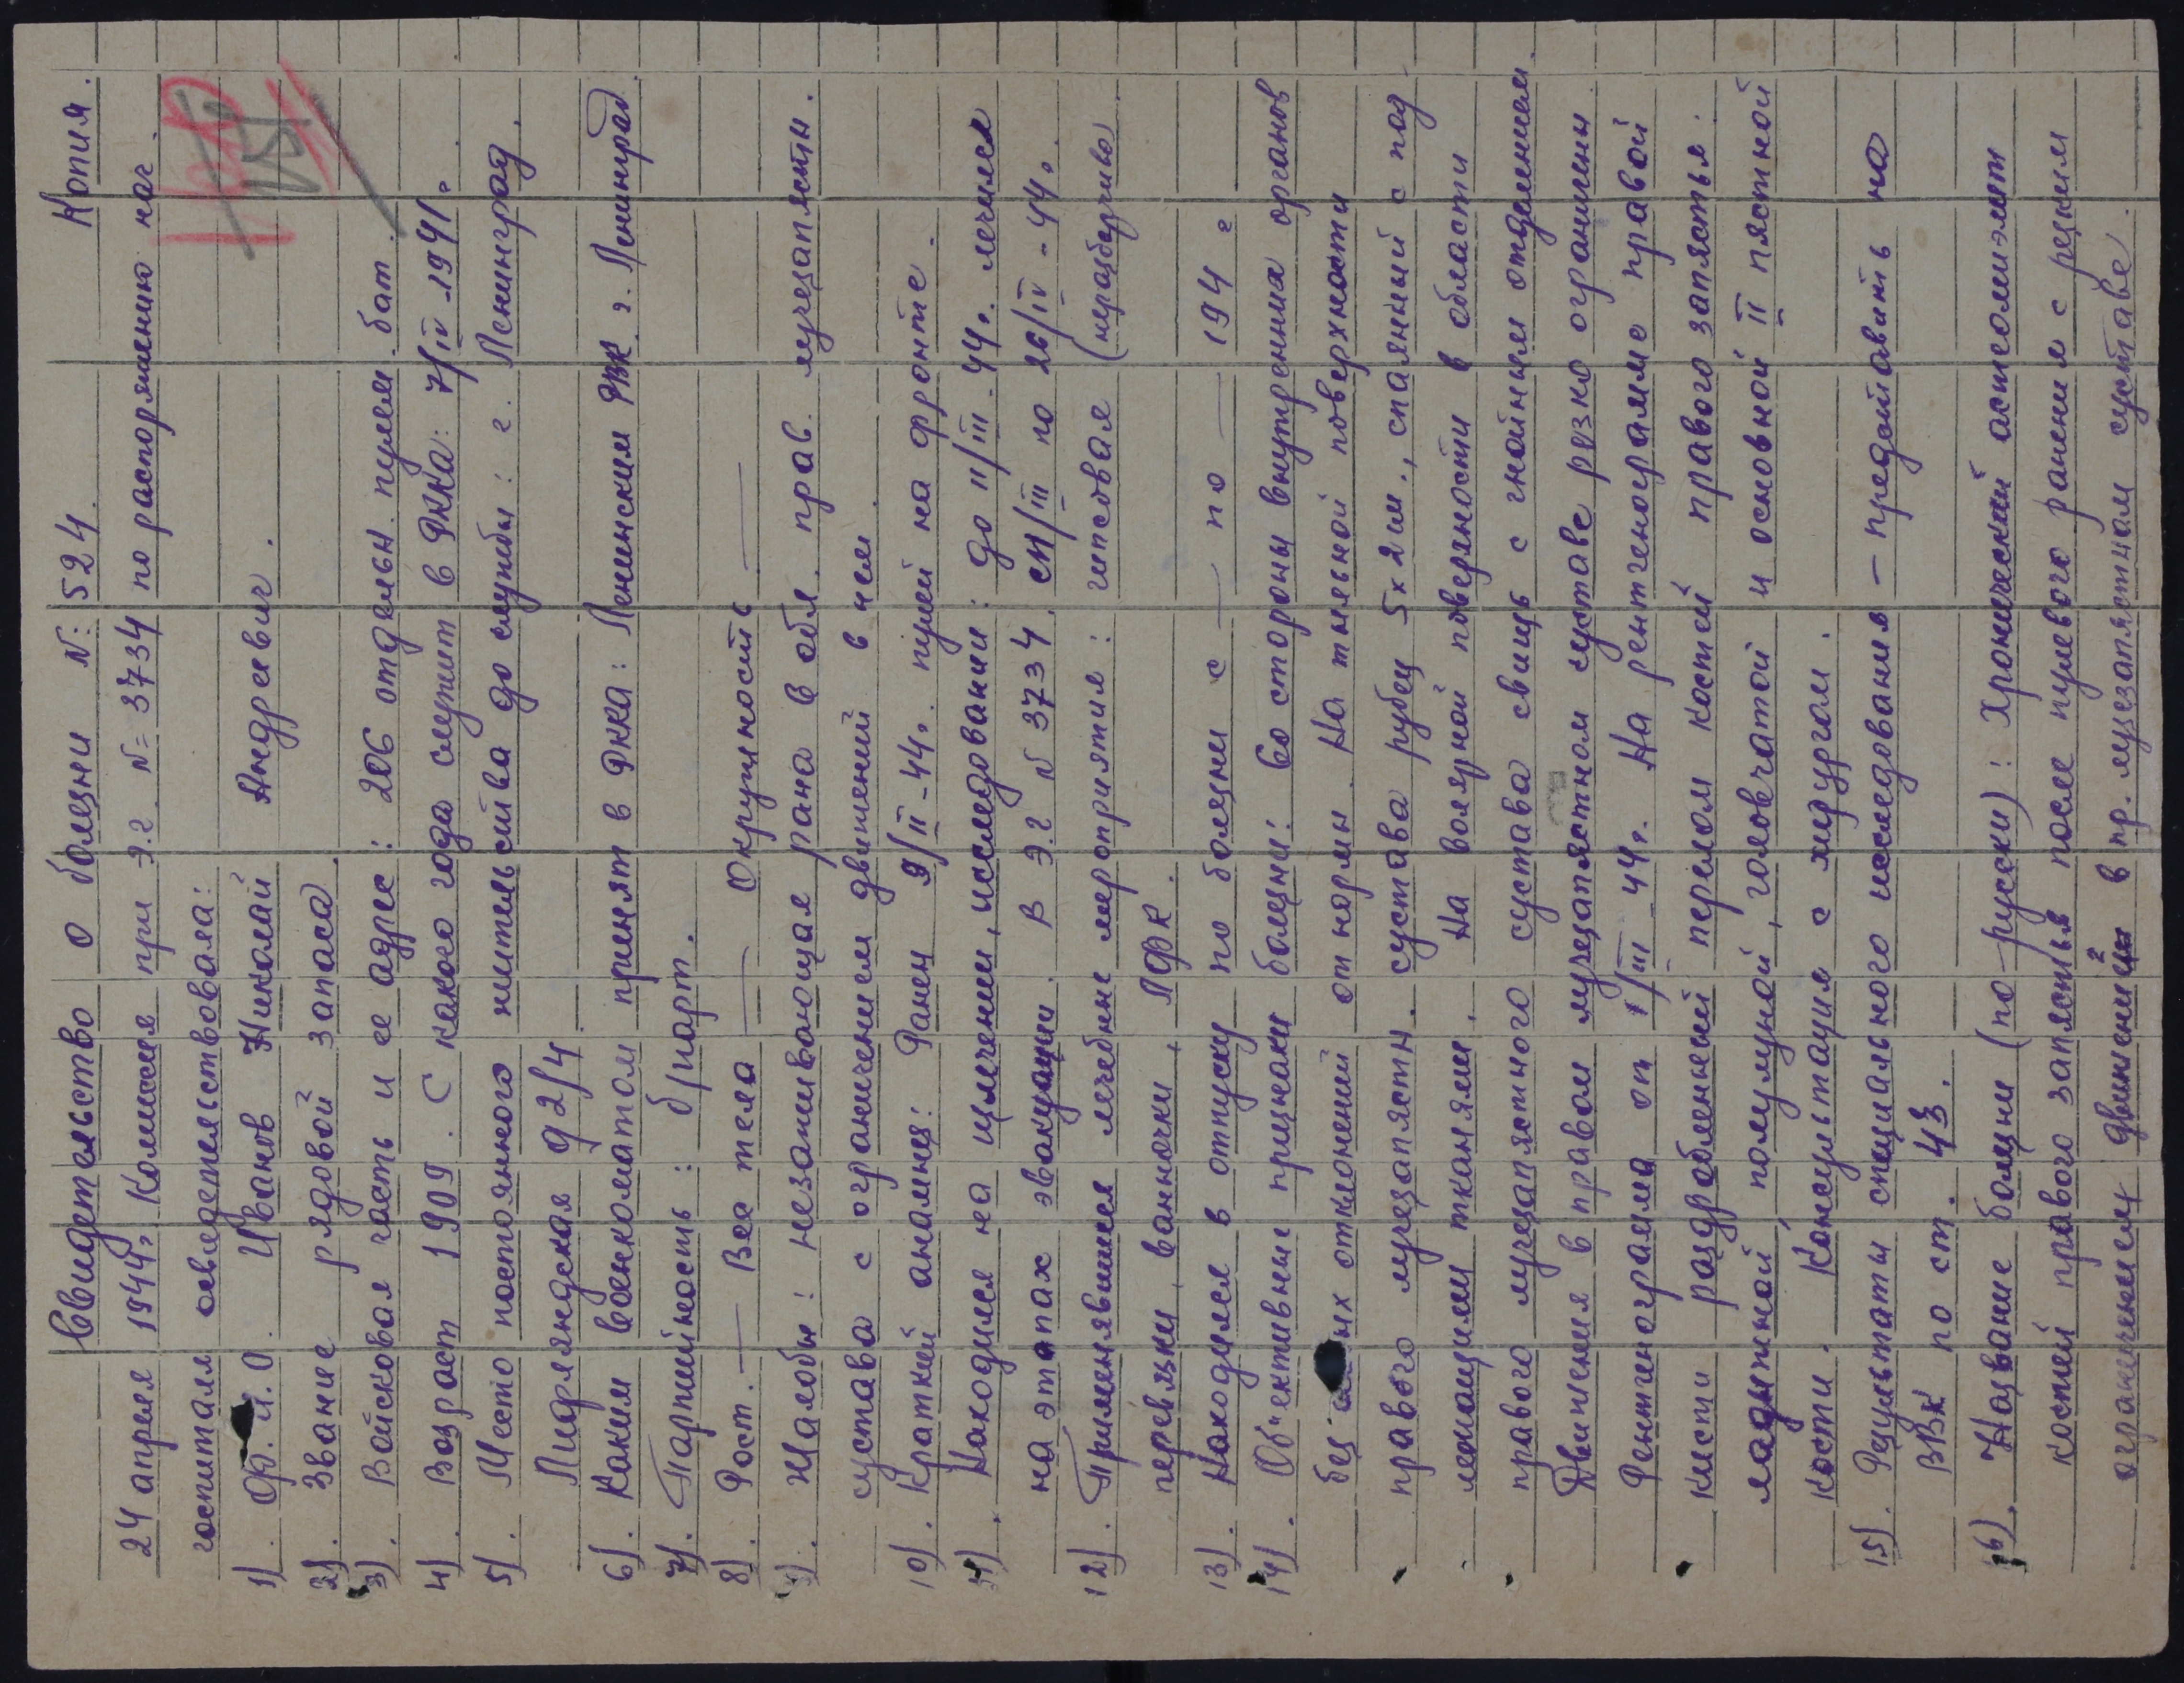 Свидетельство о болезни №: 524. Копия.
24 апреля 1944г. Комиссия при Э.г. N= 3734 по распоряжению нач.
госпиталя освидетельствовала:
1). Ф.И.О. Иванов Николай Андреевич.
2). Звание рядовой запаса.
3). Войсковая часть и ее адрес: 206 отдельн. пулем. бат.
4). Возраст 1909. С какого года служит в РККА: 7/IV-1941г.
5). Место постоянного жительства до службы: г. Ленинград.
Лифляндская д 2/4
6). Каким военкоматом принят в РККА: Ленинским РВК г. Ленинград
7). Партийность: б/парт.
8). Рост. — Вес тела — Окружность —
9). Жалобы: незаживающая рана в обл. прав. лучезапястн.
сустава с ограничением движений в нем.
10). Краткий анамнез: Ранен 9/II-44г. пулей на фронте.
11). Находился на излечении, исследовании: до 11/III-44г. лечился
на этапах эвакуации. В Э.г N 3734. с 11/III по 26/IV-44г.
12). Применявшиеся лечебные мероприятия: гипсовая (неразборчиво)
перевязки, ванночки, ЛФК.
13). Находился в отпуску по болезни с — по — 194 г
14). Об"ективные признаки болезни: Со стороны внутренних органов
без отклонений от нормы. На тыльной поверхности
правого лучезапястн. сустава рубец 5х2 см., спаянный с под-
лежащими тканями. На волярной поверхности в области
правого лучезапястного сустава свищ с гнойным отделяемым.
Движения в правом лучезапястном суставе резко ограничены
Рентгенограмма от 1/III-44г. На рентгенограмме правой
кисти раздробленный перелом костей правого запястья.
ладъежной, полулуной, головчатой и основной II пястной
кости. Консультация с хирургом.
15). Результаты специального исследования — предоставить на
ВВК по ст. 43.
16). Название болезни (по-русски): Хронический остеомиэлит
костей правого запястья после пулевого ранения с резким
ограничением движений в пр. лучезапястном суставе.